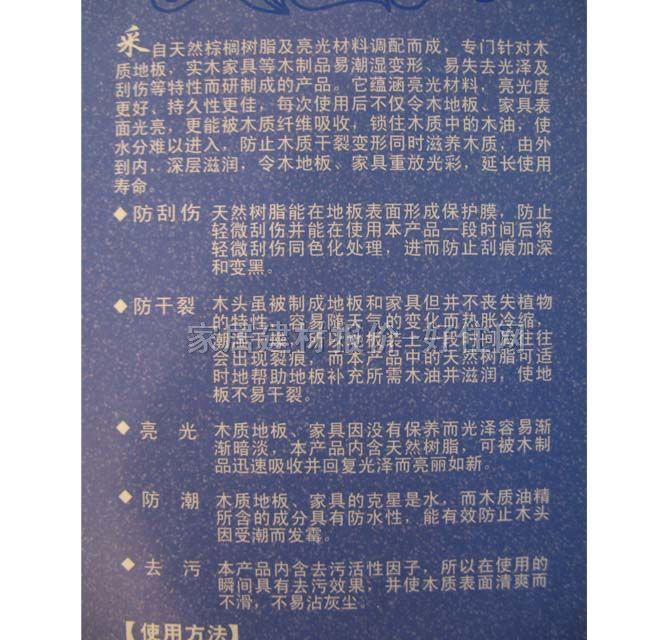 采自天然棕榈树脂及亮光材料调配而成，专门针对木
质地板，实木家具等木制品易潮湿变形、易失去光泽及
刮伤等特性而研制成的产品。它蕴涵亮光材料，亮光度
更好、持久性更佳，每次使用后不仅令木地板、家具表
面光亮，更能被木质纤维吸收，锁住木质中的木油，使
水分难以进入，防止木质干裂变形同时滋养木质，由外
到内，深层滋润，令木地板、家具重放光彩，延长使用
寿命。
◆防刮伤 天然树脂能在地板表面形成保护膜，防止
轻微刮伤并能在使用本产品一段时间后将
轻微刮伤同色化处理，进而防止刮痕加深
和变黑。
◆防干裂 木头虽被制成地板和家具但并不丧失植物
的特性，容易随天气的变化而热胀冷缩，
潮湿干燥，所以地板装上一段时间后往往
会出现裂痕，而本产品中的天然树脂可适
时地帮助地板补充所需木油并滋润，使地
板不易干裂。
◆亮光 木质地板、家具因没有保养而光泽容易渐
渐暗淡，本产品内含天然树脂，可被木制
品迅速吸收并回复光泽而亮丽如新。
◆防潮 木质地板、家具的克星是水，而木质油精
所含的成分具有防水性，能有效防止木头
因受潮而发霉。
◆去污 本产品内含去污活性因子，所以在使用的
瞬间具有去污效果，并使木质表面清爽而
不滑，不易沾灰尘。
【使用方法】